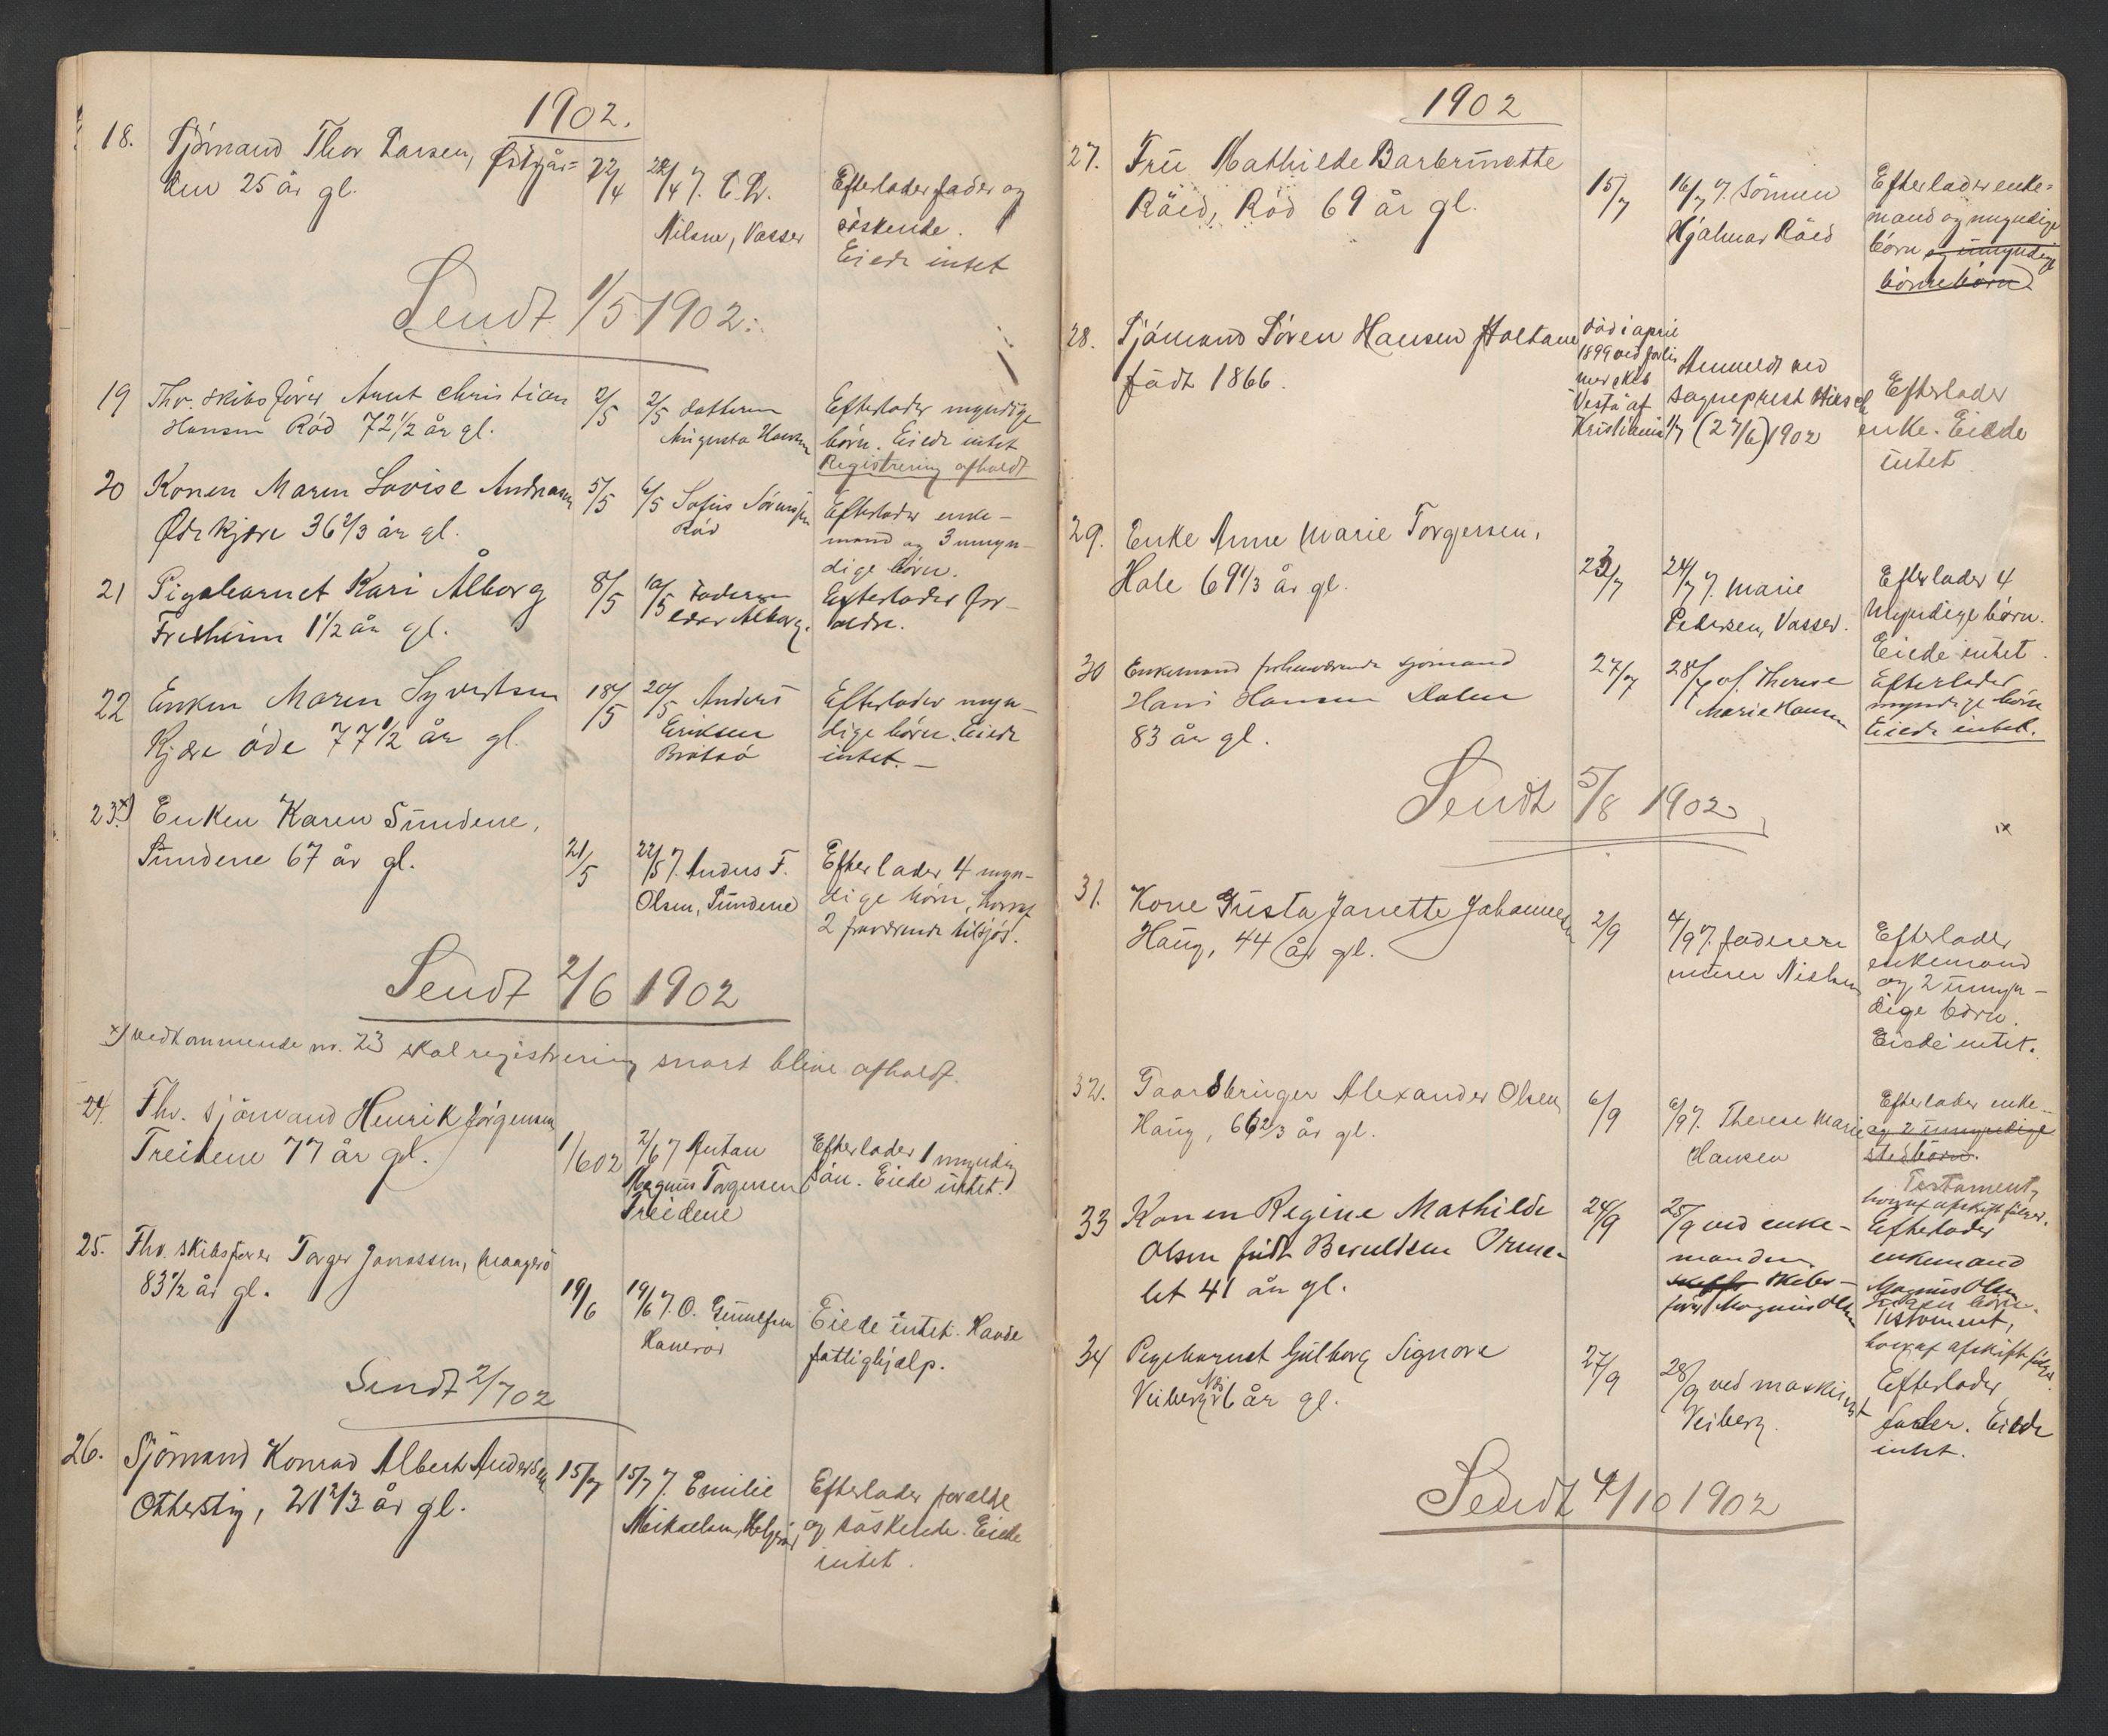 1902.
18. Sjömand Thor Larsen, Østgår=
den 25 år gl.
22/4
22/4 7. C. Nilsen, Vasser
Efterlader fader og
søskende.
Eiede intet
Sendt 1/5 1902.
19 Fhv. skibsfører Arnt Christian
Hansen Rød 72 1/2 år gl.
2/5
2/5 datteren
Augusta Hansen
Efterlader myndige
børn. Eiede intet
Registrering afholdt
20 Konen Maren Lovise Andreasen
Ødekjære 36 2/3 år gl.
5/5
6/5 Sofus Sørensen
Rød
Efterlader enke-
mand og 3 umyn-
dige børn.
21 Pigebarnet Kari Ålborg
Fresheim 1 1/2 år gl.
8/5
10/5 faderen
Ålborg.
Efterlader for-
ældre.
22 Enken Maren Syvertsen
Kjære öde 77 1/2 år gl.
18/5
20/5 Anders
Eriksen
Bråtsö
Efterlader myn-
dige börn. Eiede
intet. —
23.x) Enken Karen Sundene,
Sundene 67 år gl.
21/5
22/5 7. Anders F.
Olsen, Sundene
Efterlader 4 myn-
dige börn, hvoraf
2 fraværende tilsjös.
Sendt 2/6 1902
x) vedkommende nr. 23 skal registrering snart blive afholdt.
24. Fhv. sjömand Henrik Jörgensen
Treidene 77 år gl.
1/6 02
2/6 7 Anton
Magnus Torgersen
Treidene
Efterlader 1 myndig
sön. Eiede intet.
25. Fhv. skibsfører Torger Jonassen, Maagerö
83 1/2 år gl.
19/6
19/6 7. O. Gunulfsen
Eiede intet. Havde
fattighjælp.
Sendt 2/7 02
26. Sjömand Konrad Albert Andersen
Otterstig, 21 2/3 år gl.
15/7
15/7 7. Emilie
Mikaelsen, Helgerö,
Efterlader forældre
og söskende. Eiede
intet.
1902
27. Fru Mathilde Barbrinette
Röed, Röd 69 år gl.
15/7
16/7 7. Sönnen
Hjalmar Röed
Efterlader enke=
mand og myndige
börn og umyndige
börnebörn
28. Sjömand Sören Hansen Holtane
födt 1866.
död i april
1899 ved forlis
med skib
Vesta af
Kristiania
Anmeldt ved
sogneprest
1/7 (27/6) 1902
Efterlader
enke. Eiede
intet
29. Enke Anne Marie Torgersen,
Hole 69 1/3 år gl.
23/7
24/7 7. Marie
Pedersen, Vasser.
Efterlader 4
myndige börn.
Eiede intet.
30 Enkemand forhenværende sjömand
Hans Hansen Dalen
83 år gl.
27/7
28/7 af Therese
Marie Hansen
Efterlader
myndige börn
Eiede intet.
Sendt 5/8 1902
x
31. Kone Gusta Janette Johannesen
Haug, 44 år gl.
2/9
4/9 7. faderen
murer Nielsen
Efterlader
enkemand
og 2 umyn-
dige börn.
Eiede intet.
32. Gaardbruger Alexander Olsen
Haug, 66 2/3 år gl.
6/9
6/9 7. Therese Marie
Hansen
Efterlader enke
og 2 umyndige
stedbörn.
Testament,
hvoraf afskrift følger.
33 Konen Regine Mathilde
Olsen født Berntsen Orme-
let 41 år gl.
24/9
25/9 ved enke-
manden
skibs-
fører Magnus Olsen
Efterlader
enkemand
Magnus Olsen
Ingen børn.
Testament,
hvoraf afskrift følger.
34 Pigebarnet Gulborg Signora
Veiberg 6 år gl.
27/9
28/9 ved maskinist
Veiberg.
Efterlader
fader. Eiede
intet.
Sendt 4/10 1902